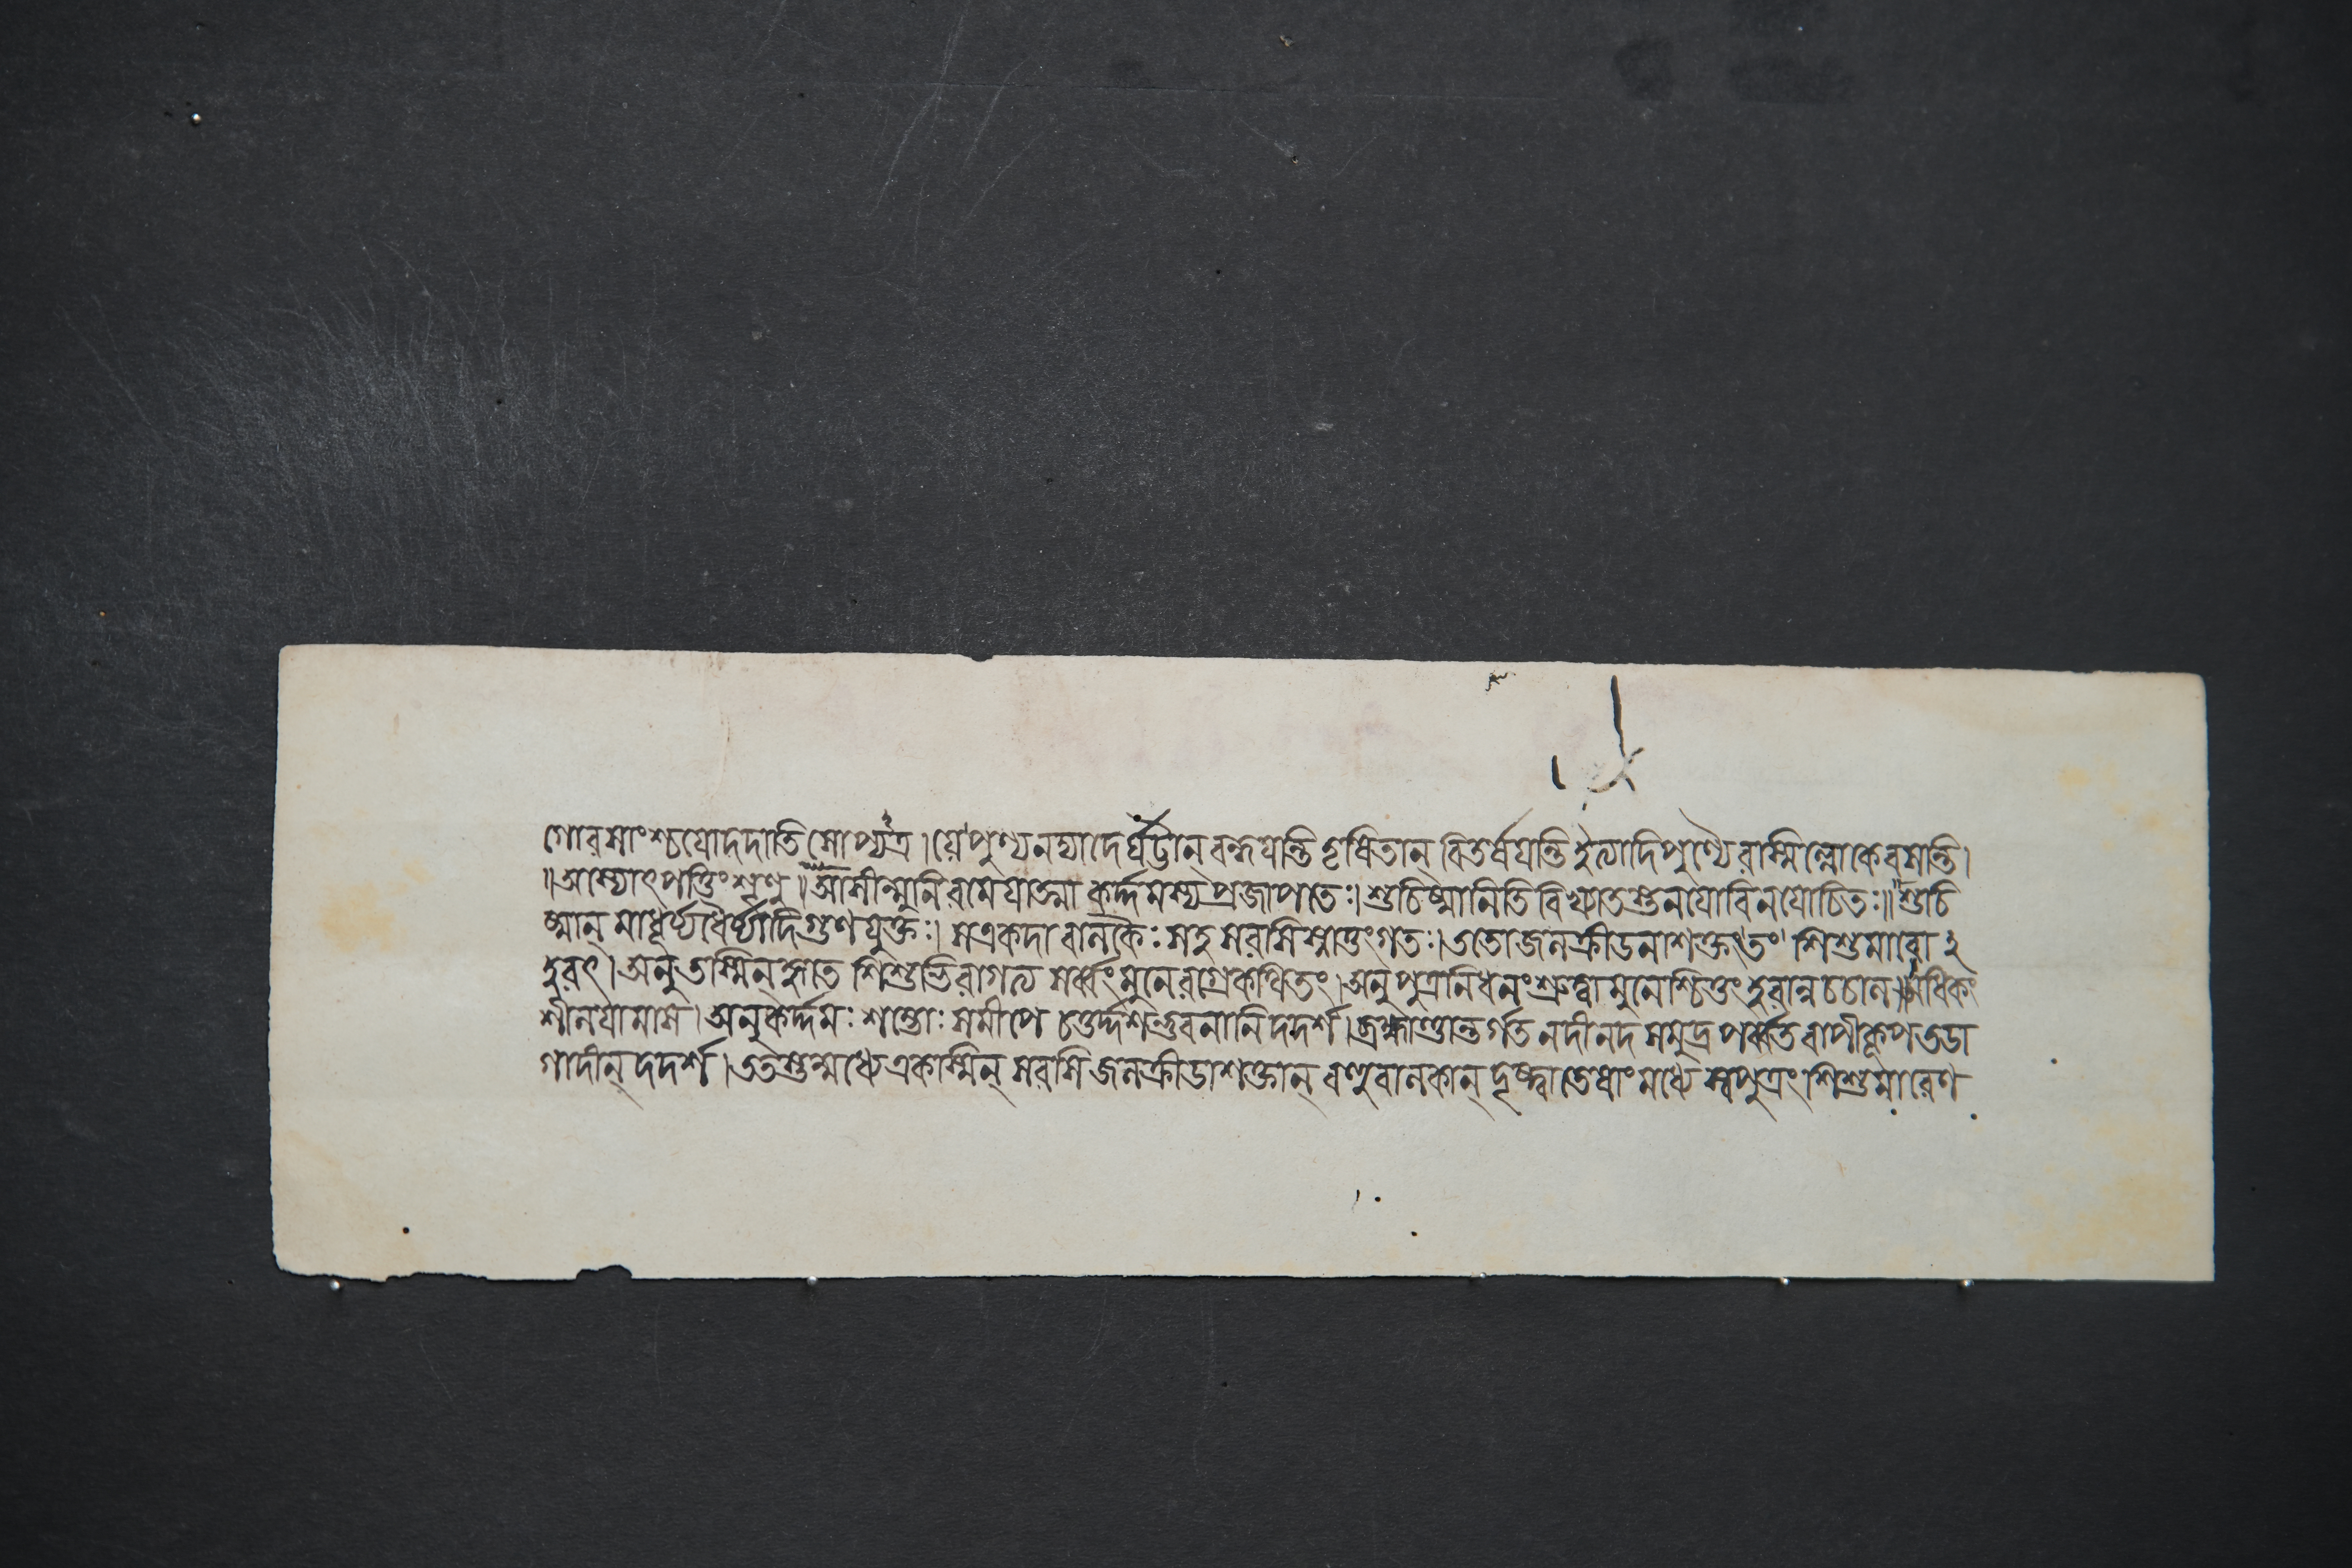 গোরসাংশ্চ যো দদাতি সোপ্যত্র । যে পুণ্যনদ্যাদের্ঘট্টান্ বন্ধয়ন্তি তৃষিতান্ বিতর্ষয়ন্তি ইত্যাদিপুণ্যৈরস্মিল্লোকে বসন্তি ।
॥ অস্যোৎপত্তিং শৃণু ॥ আসীন্মুনিরমেয়াত্মা কর্দ্দমস্য প্রজাপতেঃ । শুচিষ্মানিতি বিখ্যাতস্তনয়ো বিনয়োচিতঃ ॥ শুচি
ষ্মান্ মাধূর্য্যধৈর্য্যাদিগুণযুক্তঃ । স একদা বালকৈঃ সহ সরসি স্নাতুং গতঃ । ততো জলক্রীডনাশক্তং তং শিশুমারো ই
হরৎ । অনু তস্মিন্ হৃতে শিশুভিরাগত্য সর্ব্বং মুনেরগ্রে কথিতং । অনু পুত্রনিধনং শ্রুত্বা মুনেশ্চিত্তং হরান্ন চচাল । অধিকং
শীলয়ামাস । অনু কর্দ্দমঃ শম্ভোঃ সমীপে চতুর্দ্দশভুবনানি দদর্শ । ব্রহ্মাণ্ডান্তর্গত নদীনদসমুদ্রপর্ব্বতবাপীকূপতডা
গাদীন্ দদর্শ । ততস্তন্মধ্যে একস্মিন্ সরসি জলক্রীডাশক্তান্ বহুবালকান্ দৃষ্ট্বা তেষাং মধ্যে স্বপুত্রং শিশুমারেণ